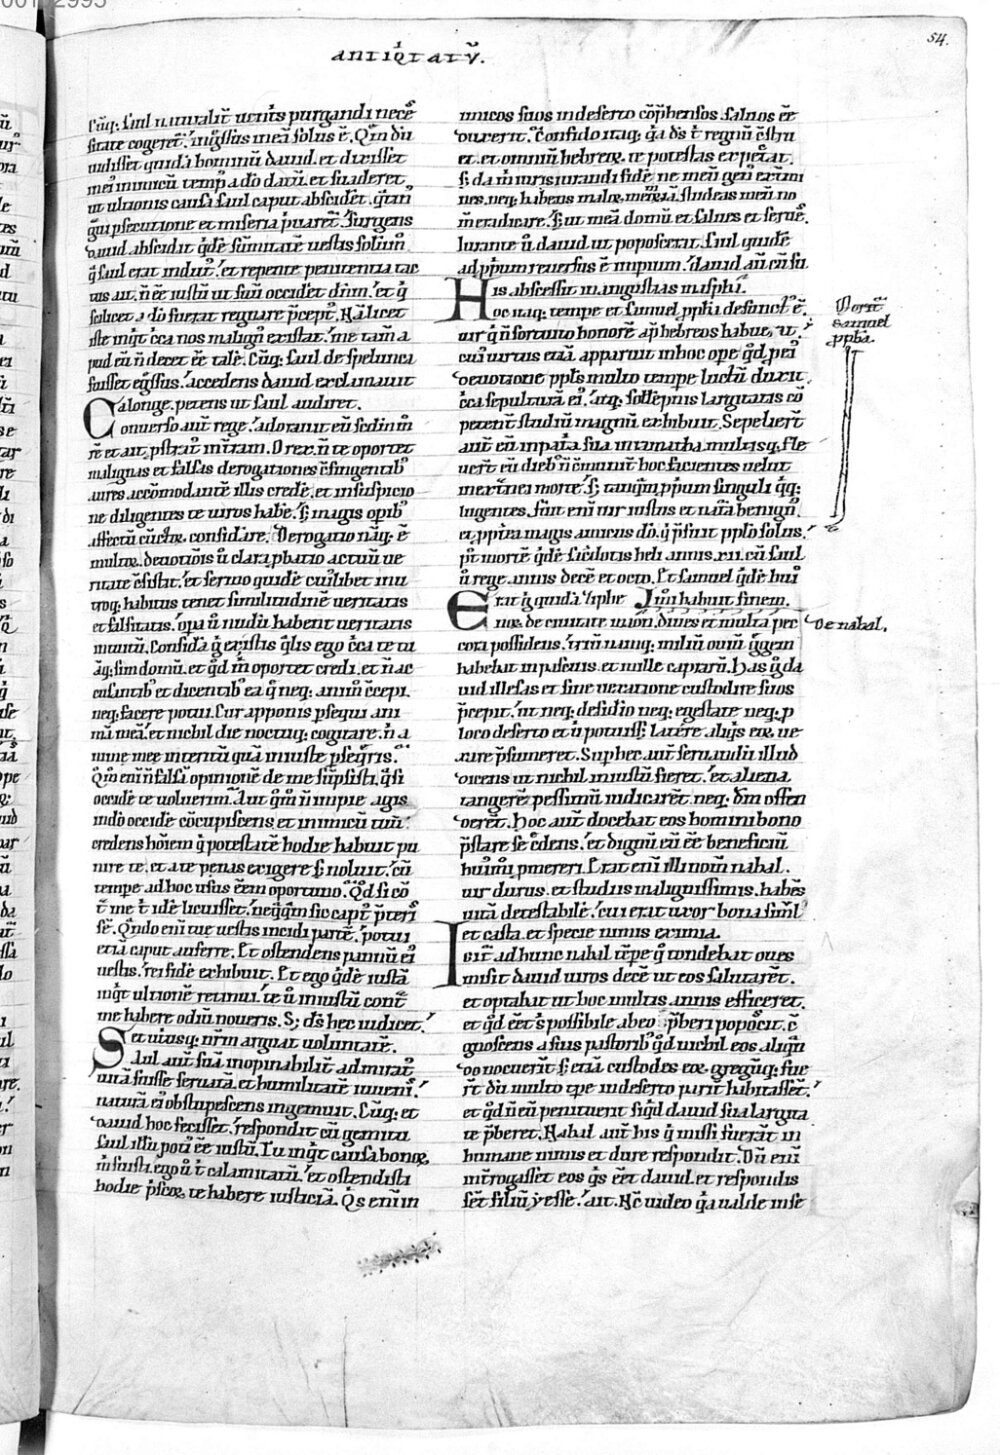 54.
antiq̓tatū.
Cūq; saul naturalit̄ uent̓s purgandi necē
sitate cogeret̄. ingr̄ssus in eā solus ē. Qm̄ diu
uidisset quidā hominū dauid. et dixisset
mei inimicū temp̓ a dō datū. et suaderet
ut ultionis causa saul caput abscidet̄.
p̄secutione et miseria p̓uaret̄. Surgens
dauid abscidit q̓dē sūmitatē uestis solūm̄
q̓ saul erat indut̓. et repente penitentia tac
tus ait. n̄ ēē iustū ut suū occidet dn̄m. et q̓
scilicet a dō fuerat regnare p̄cept̓. Nā licet
iste inq̓t c̓ca nos malign̓ existat. me tam̄ a
pud eū n̄ decet ēē talē. Cūq; saul de spelunca
fuisset egr̄ssus. accedens dauid exclamauit
a longe. petens ut saul audiret.
Conuerso aut̄ rege. adorauit eū sedm̄ m̄
rē et ait. pstrat̓ in t̄ram. O rex. n̄ te oportet
malignas et falsas derogationes c̄fingentib̓
aures accōmodantē illis credē. et in suspicio
ne diligentes te uiros habē. s; magis opib̓
affectū cūctoꝝ considare. Derogatio nāq; ē
multoꝝ. deuotiōis ū clara p̱batio actuū ue
ritate c̄sistit. et sermo quidē cui̓libet in u
troq; habitus tenet similitudinē ueritatis
et falsitatis. opa ū nudū habent ueritatis
intuitū. Considā g̓ existis q̓lis ego c̓ca te tu
āq; sim domū. et q̓d m̄ oportet credi. et n̄ ac
cusantib̓ et dicentib̓ ea q̄ neq; animo c̄cepi.
neq; facere potui. Cur apponis p̱sequi ani
mā meā. et nichil die noctuq; cogitare. n̄ a
nime mee interitū quā iniuste p̱seq̄ris.
Qm̄ enī n̄ falsā opinionē de me sūpsisti. q̓si
occidē te uoluerim. Aut q̓m̄ n̄ impie agis
in dō occidē cōcupiscens. et inimicū tuū
credens hōiem q̓ potestatē hodie habuit pu
nire te. et a te penas exigere s; noluit. cū
tempe ad hoc usus ēēm oportuno. Qd̓ si cō
t̄ me t̄ idē licuisset. neq̄q̄m sic capt̓ p̄teri
sē. Qn̄do enī tue uestis incidi partē. potui
etiā caput auferre. Et ostendens pannū ei̓
uestis. rei fidē exhibuit. Et ego q̓dē iustā
inq̓t ultionē retinui. te ū iniustū cont̄
me habere odiū noueris. S; ds̄ hec iudicet.
et utriusq; nr̄m arguat uoluntatē.
Saul aut̄ suā inopinabilit̄ admirat̓
uitā fuisse seruatā. et humilitatē iuuenis.
naturā ei̓ obstupescens ingemuit. Cūq; et
dauid hoc fecisset. respondit cū gemitu
saul illū poti̓ ēē iustū. Tu inq̓t causa bonoꝝ
m̄ fuisti. ego ū t̄ calamitatū. et ostendisti
hodie p̓scoꝝ te habere iusticiā. Q̓s enī in
inimicos suos in deserto cōp̄hensos saluos ēē
duxerit. Confido itaq; q̄a ds̄ t̄ regnū c̄stru
et. et omniū hebreoꝝ te potestas expectat.
s; da m̄ iuris iurandi fidē ne meū gen̓ extmi
nes. neq; habens maloꝝ memoriā studeas meū no
m̄ eradicare. s; ut meā domū et salues et serues.
Iurante ū dauid ut poposcerat. saul quidē
ad p̱prium reuersus ē imperium. dauid aū cū su
is abscessit in angustias masphi.
Hoc itaq; tempe et samuel pph̄a defunct̓ ē.
uir q̄ n̄ fortuito honorē ap̓ hebreos habuit. ut
cui̓ uirtus etiā apparuit in hoc ope q̓d p̱ ei̓
deuotione ppl̄s multo tempe luctū duxit
c̓ca sepulturā ei̓. atq; sollēpnis largitatis cō
petent̄ studiū magnū exhibuit. Sepelier̄t
aut̄ eū in patria sua in ramatha multisq; fle
uer̄t eū dieb̓ n̄ c̄muni̓t hoc facientes uelut
in extranei morte. s; tanq̄m p̱prium singuli q̓q;
lugentes. fuit enī uir iustus et natura benign̓.
et p̱pterea magis amicus dō. q̄ p̱fuit pplō solus.
p̓t mortē q̓dē sacerdotis heli annis. xii. cū saul
ū rege annis decē et octo. Et samuel q̓dē hui̓
Erat g̓ quidā ziphe   modi habuit finem.
noꝝ. de ciuitate maon. diues et multa pec
cora possidens. triū namq; miliū ouiū gregem
habebat in pascuis. et mille capraꝝ. Has g̓ da
uid illesas et sine uexatione custodire suos
p̄cepit. ut neq; desidio neq; egestate neq; p̱
loco deserto et ū potuiss; latere. aliq̓s eoꝝ ue
xare p̱sumeret. Sup hec aut̄ seruandū illud
dicens ut nichil iniustū fieret. et aliena
tangere pessimū iudicaret. neq; dm̄ offen
deret̄. Hoc aut̄ docebat eos homini bono
p̄stare se c̄dens. et dignū eū ēē beneficiū
hui̓m̓i p̱mereri. Erat enī illi nom̄ nabal.
uir durus. et studiis malignissimis. habēs
uitā detestabilē. cui erat uxor bona simul
et casta. et specie nimis eximia.
Igit̄ ad hunc nabal tēpe q̓ tondebat oues
misit dauid uiros decē ut eos salutaret̄.
et optabat ut hoc multis annis efficeret.
et q̓d ēēt s̓ possibile ab eo p̄beri poposcit. c̄
gnoscens a suis pastorib̓ q̓d nichil eos aliq̄n
do nocuerit. s; etiā custodes eoꝝ gregūq; fue
r̄t diu multo tp̄e in deserto parit̄ habitassēt.
et q̓d n̄ eū peniterit siq̓d dauid sua largita
te p̄beret. Nabal aut̄ his q̓ missi fuerāt in
humane nimis et dure respondit. Dū enī
int̄rogasset eos q̓s ēēt dauid. et respondis
sēt filiū yesse. ait. Nc̄ uideo q̓a ualde in se
Morit̄
Samuel
ppha.
De nabal.